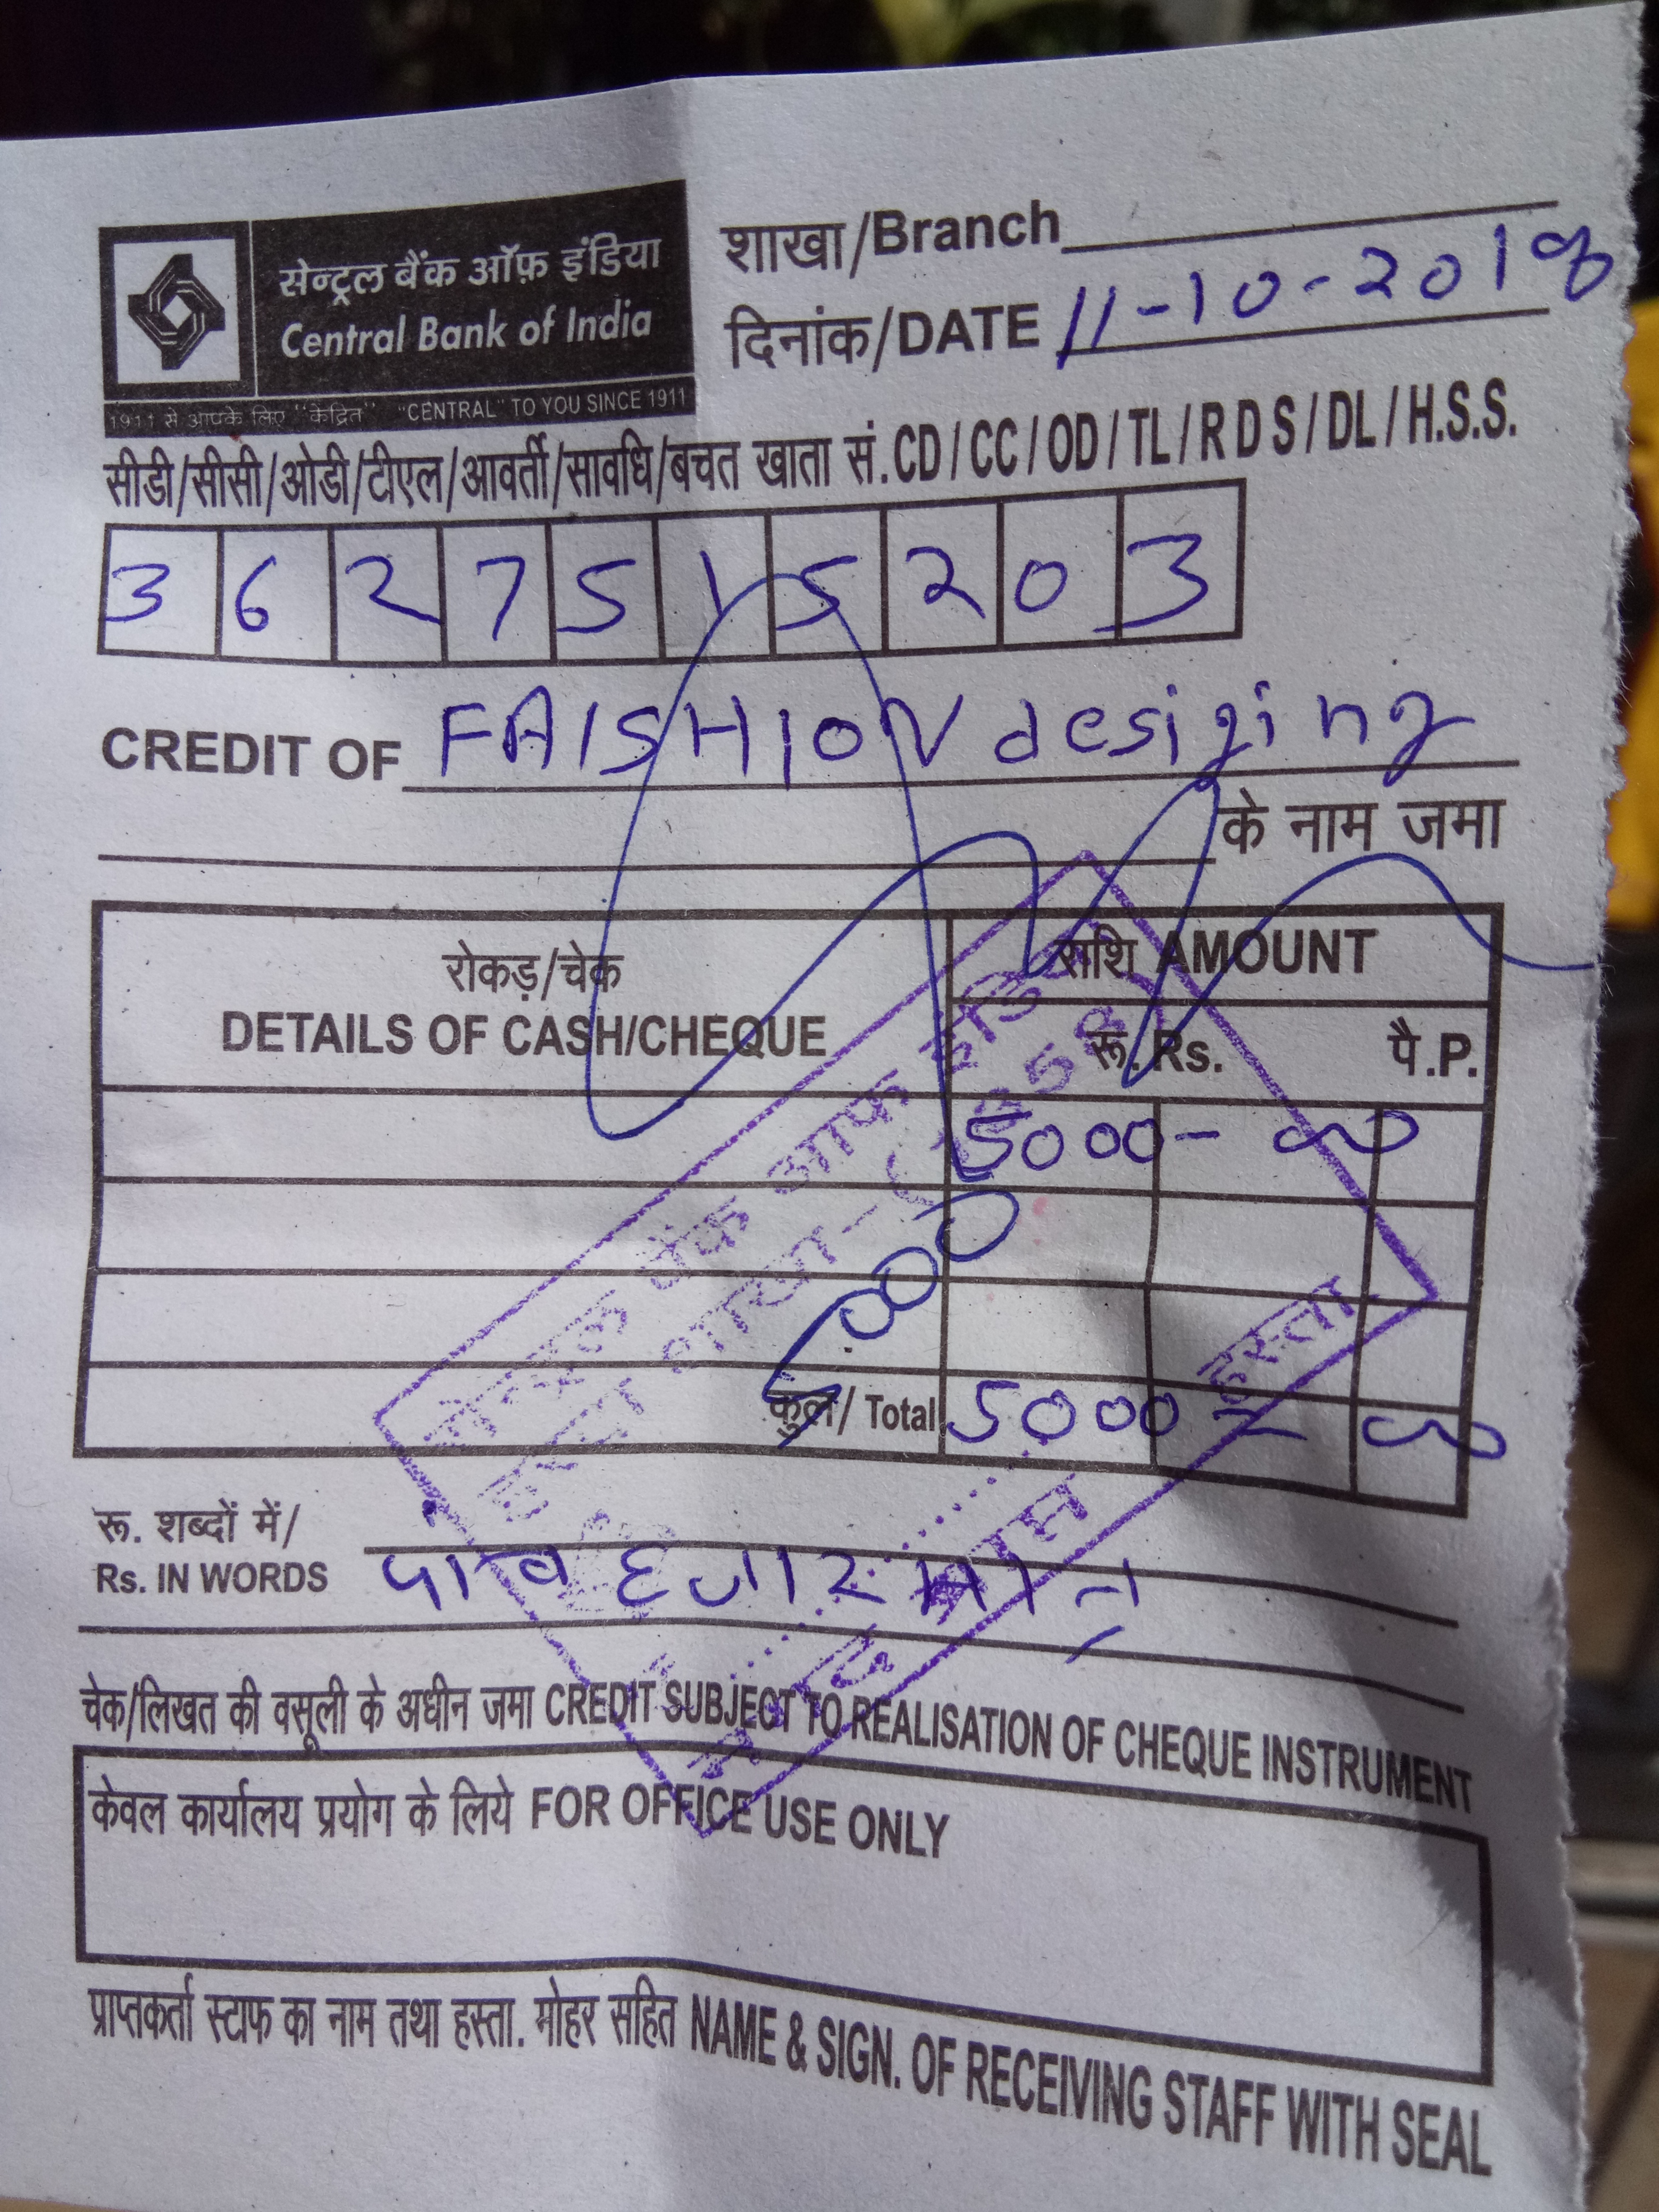 सेन्ट्रल बैंक ऑफ़ इंडिया
Central Bank of India
1911 से आपके लिए "केंद्रित" "CENTRAL" TO YOU SINCE 1911
शाखा/Branch
दिनांक/DATE 11-10-2018
सीडी/सीसी/ओडी/टीएल/आवर्ती/सावधि/बचत खाता सं. CD/CC/OD/TL/R D S/DL/H.S.S.
3 6 2 7 5 1 5 2 0 3
CREDIT OF FAISHION desiging
के नाम जमा
रोकड़/चेक राशि AMOUNT
DETAILS OF CASH/CHEQUE रू. Rs. पै.P.
5000-00
5000
कुल/ Total 5000=00
रू. शब्दों में/
Rs. IN WORDS पांच हजार मात्र
चेक/लिखत की वसूली के अधीन जमा CREDIT SUBJECT TO REALISATION OF CHEQUE INSTRUMENT
केवल कार्यालय प्रयोग के लिये FOR OFFICE USE ONLY
प्राप्तकर्ता स्टाफ का नाम तथा हस्ता. मोहर सहित NAME & SIGN. OF RECEIVING STAFF WITH SEAL
सेन्ट्रल बैंक आफ इंडिया
हस्ता